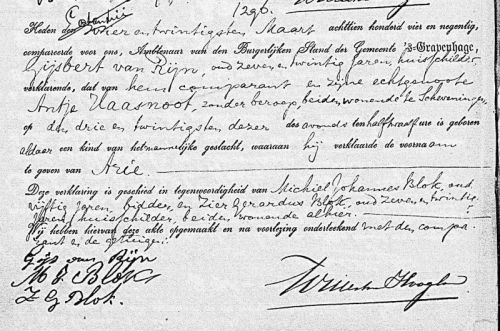 1296.
Heden den Vier en twintigsten Maart achttien honderd vier en negentig,
compareerde voor ons, Ambtenaar van den Burgerlijken Stand der Gemeente 's-Gravenhage,
Gijsbert van Rijn, oud zeven en twintig jaren, huisschilder
verklarende, dat van hem comparant en zijne echtgenoote
Antje Haasnoot, zonder beroep, beiden wonende te Scheveningen
op den drie en twintigsten dezer des avonds ten half twaalf ure is geboren
aldaar een kind van het mannelijke geslacht, waaraan hij verklaarde de voornaam
te geven van Arie.
Deze verklaring is geschied in tegenwoordigheid van Michiel Johannes Blok, oud
vijftig jaren, bidder, en Zier Gerardus Blok, oud zeven en twintig
jaren, huisschilder, beiden wonende alhier.
Wij hebben hiervan deze akte opgemaakt en na voorlezing onderteekend met den compa-
rant en de getuigen.
Gijs van Rijn
M J Blok
Z G Blok.